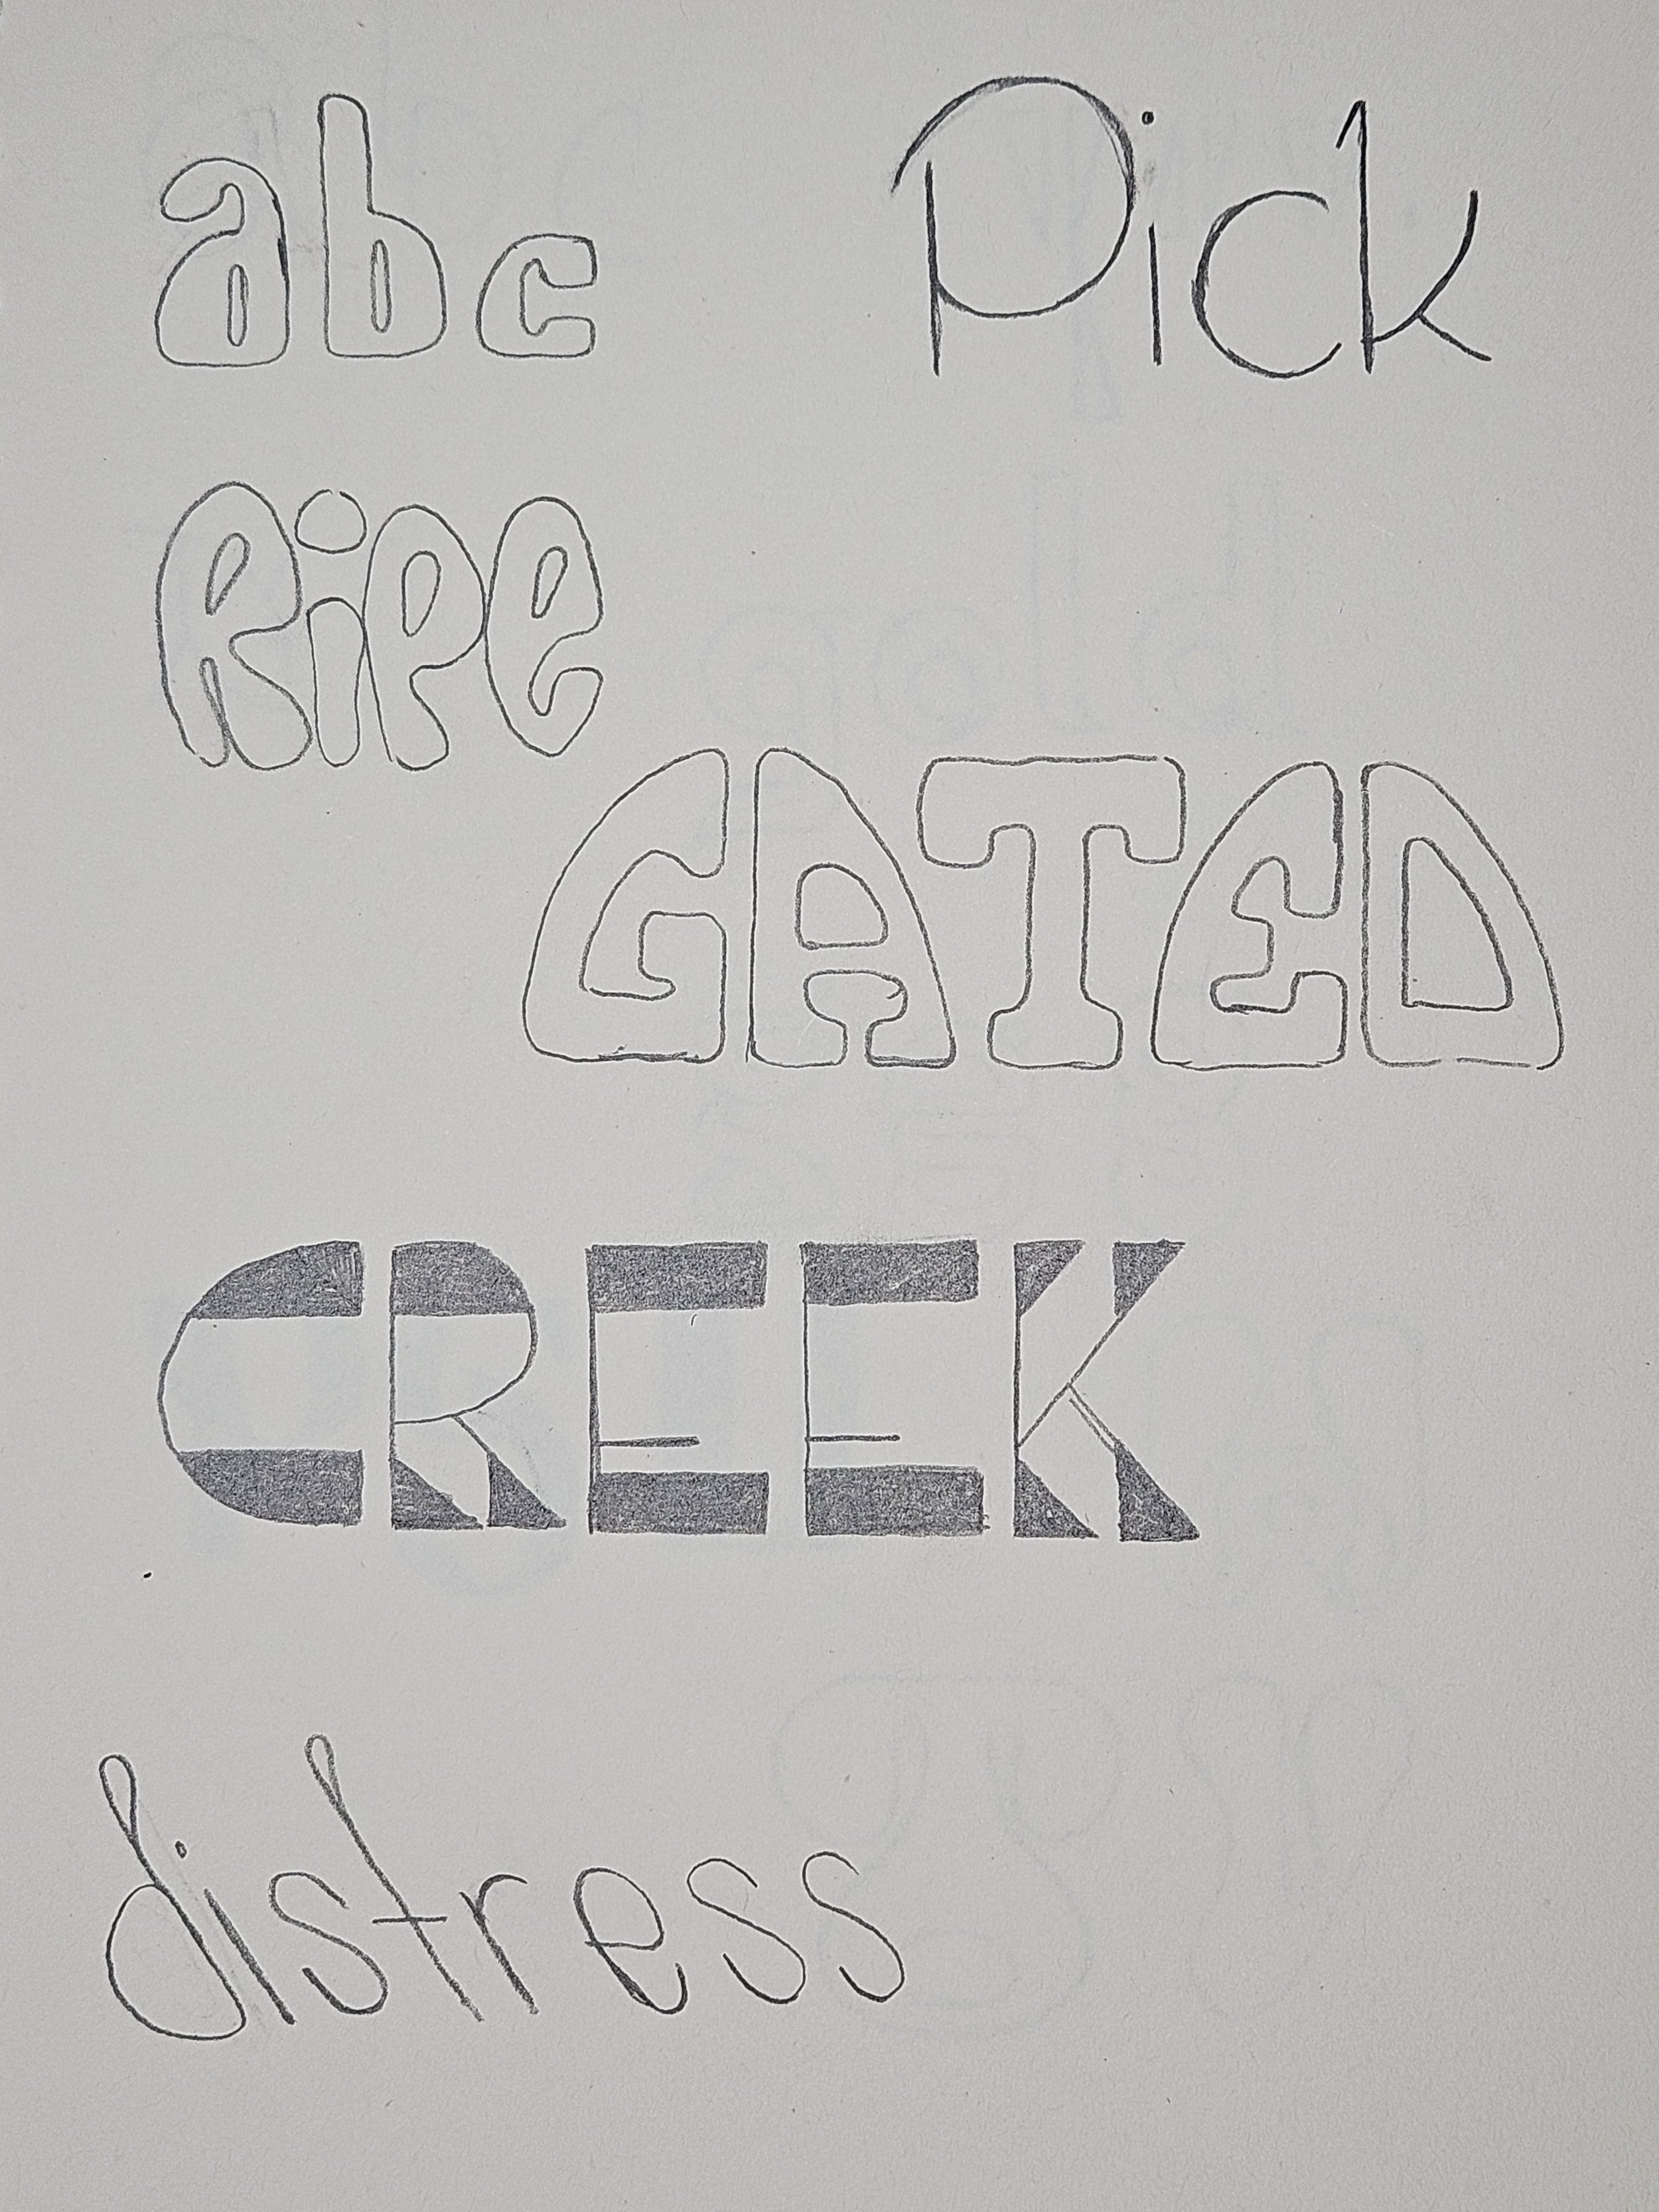 abc Pick
Ripe
GATED
CREEK
distress